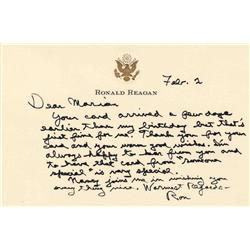 RONALD REAGAN
Febr. 2
Dear Marian
Your card arrived a few days
earlier than my birthday but that's
just fine for me. Thank you for your
card and your warm good wishes. I'm
always happy to hear from you and
to have that card from "someone
special" is very special.
Nancy joins me in wishing you
every thing fine. Warmest Regards –
Ron